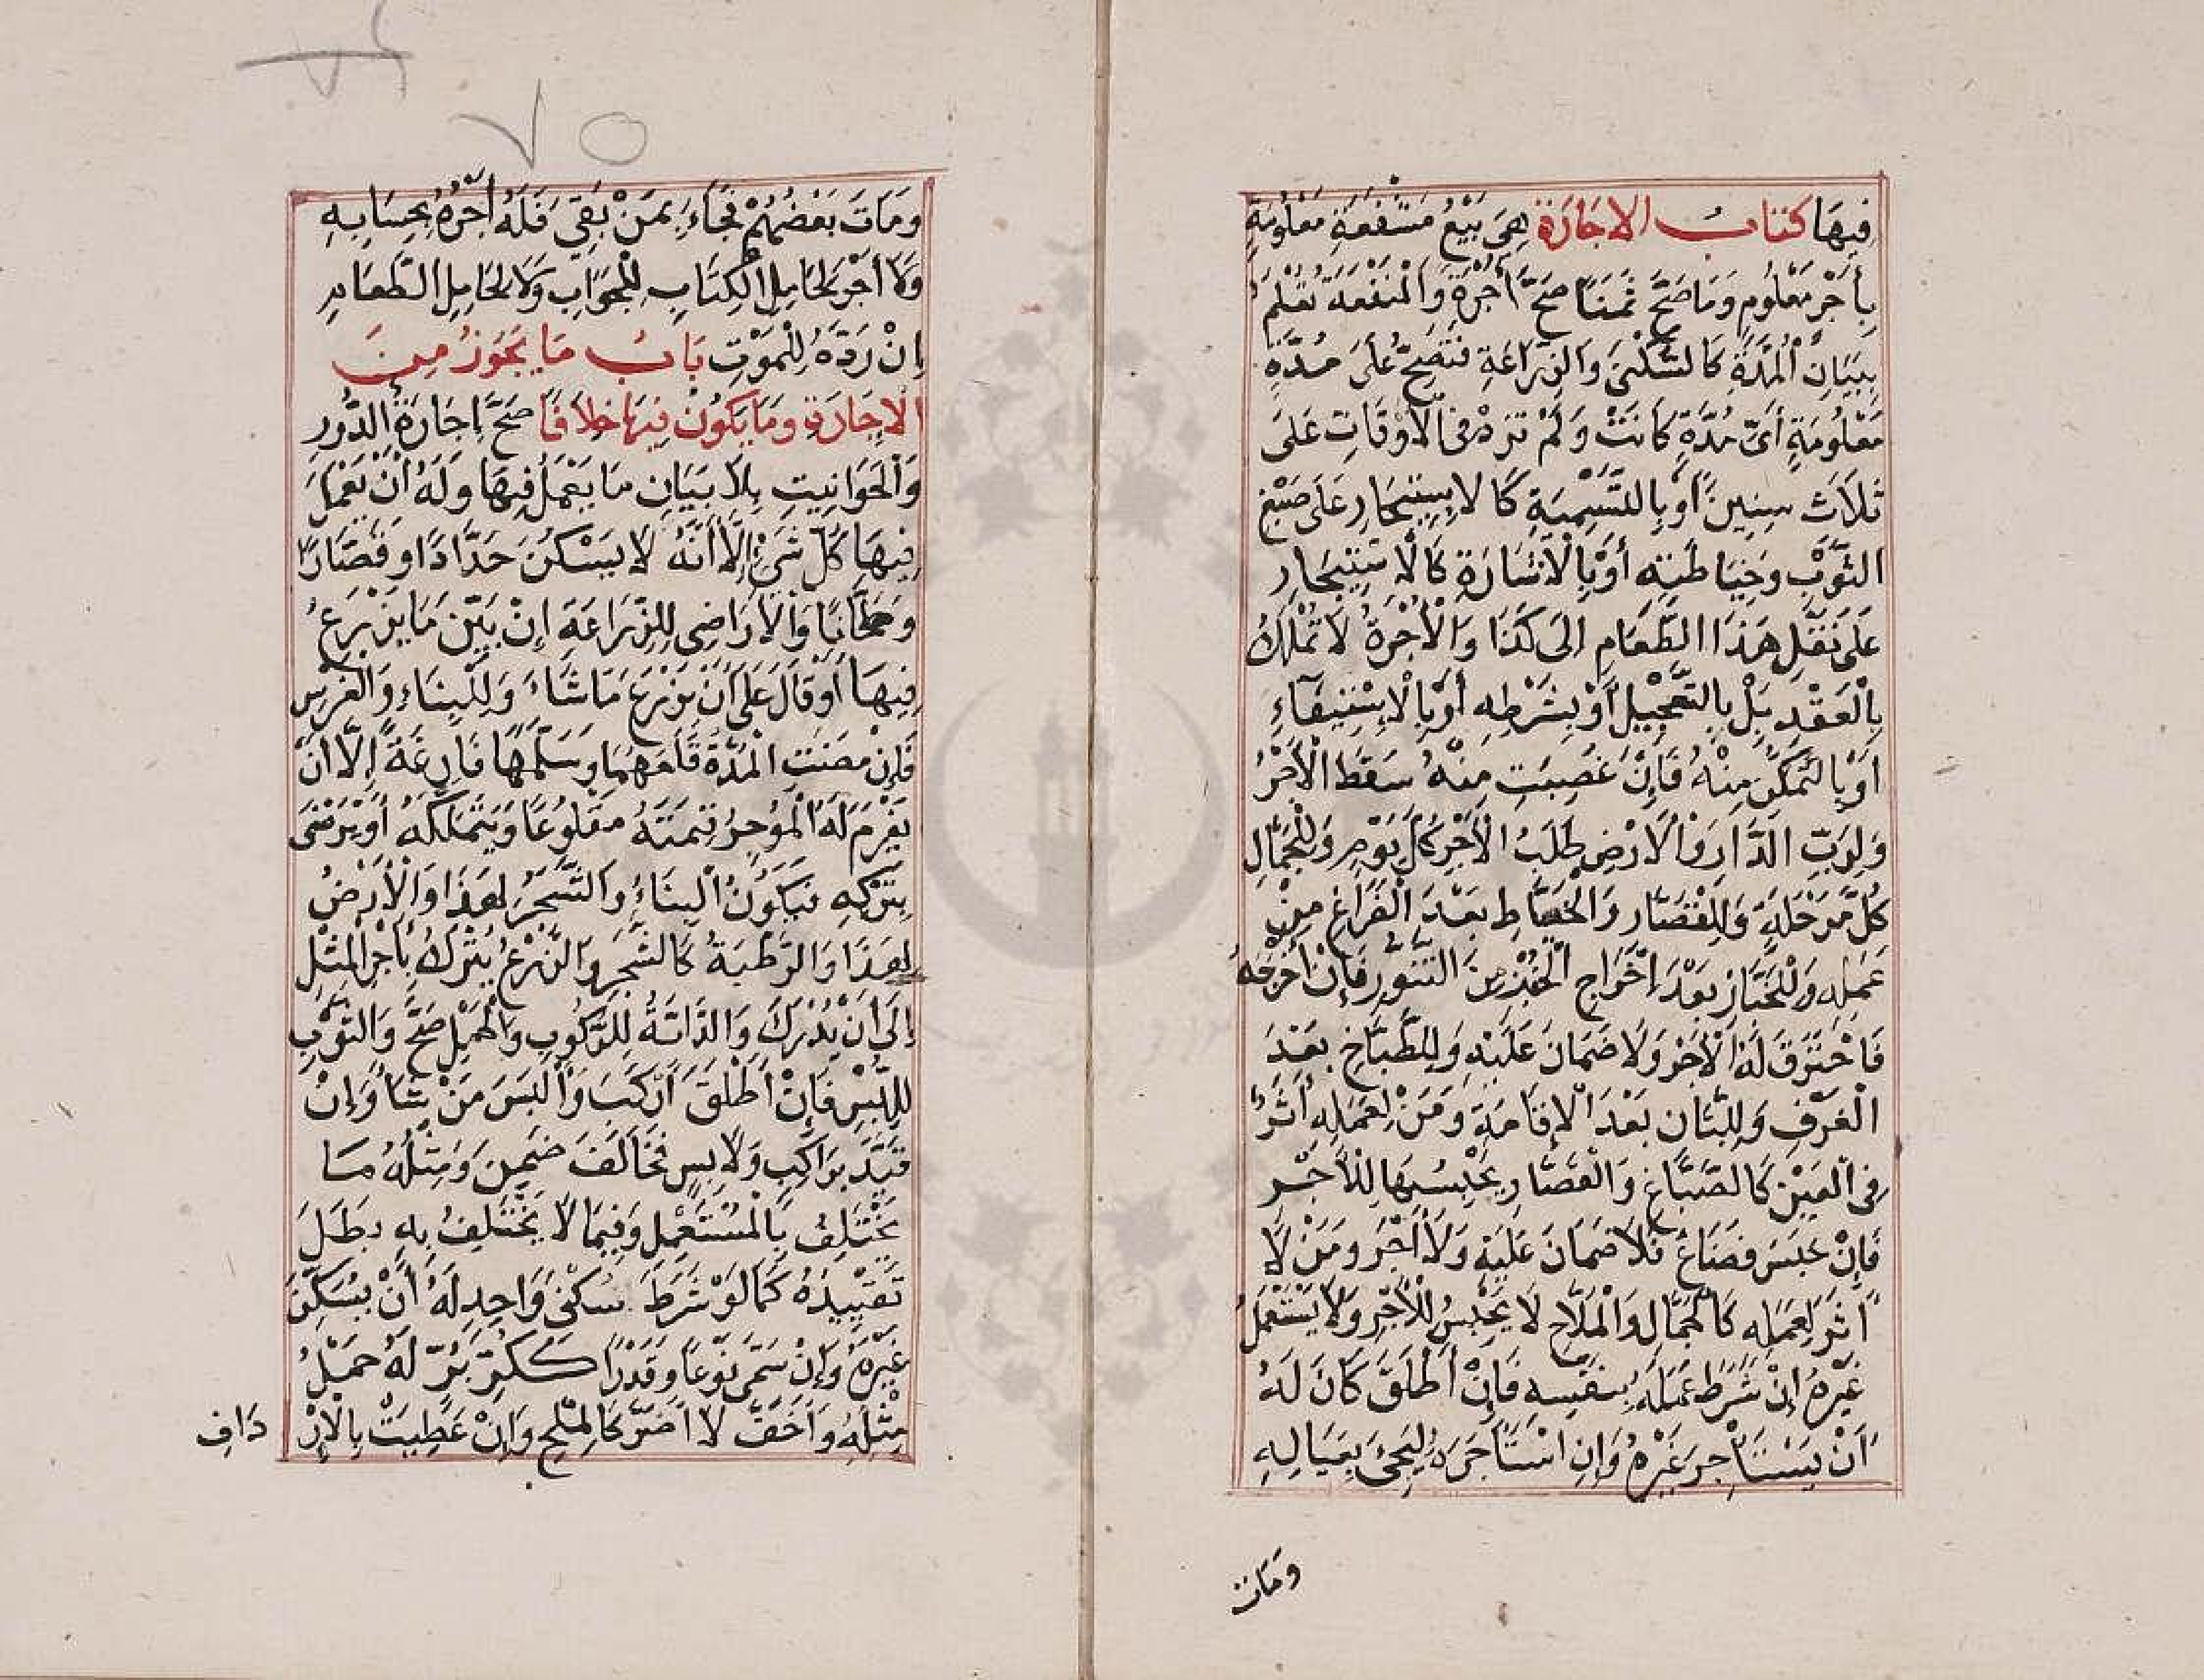 فِيهَا كتاب الاجَارَة هِىَ بَيْعُ مَنْفَعَةٍ مَعْلُومَةٍ
بِأَجْرٍ مَعْلُومٍ وَمَا صَحَّ ثَمَنًا صَحَّ أُجْرَةً وَالْمَنْفَعَةُ تُعْلَمُ
بِبَيَانِ الْمُدَّةِ كَالسُّكْنَى وَالزِّرَاعَةِ فَتَصِحُّ عَلَى مُدَّةٍ
مَعْلُومَةٍ أَىَّ مُدَّةٍ كَانَتْ وَلَمْ تَزِدْ فِى الْأَوْقَاتِ عَلَى
ثَلَاثَ سِنِينَ أَوْ بِالتَّسْمِيَةِ كَالْاِسْتِيجَارِ عَلَى صَبْغِ
الثَّوْبِ وَخِيَاطَتِهِ أَوْ بِالْاَشَارَةِ كَالْاِسْتِيجَارِ
عَلَى نَقْلِ هَذَا الطَّعَامِ اِلَى كَذَا وَالْأُجْرَةُ لَا تُمْلَكُ
بِالْعَقْدِ بَلْ بِالتَّعْجِيْلِ أَوْ بِشَرْطِهِ أَوْ بِالْاِسْتِيفَآءِ
اَوْ بِالتَّمَكُّنِ مِنْهُ فَإِنْ غُصِبَتِ مِنْهُ سَقَطَ الْأَجْرُ
وَلِرَبِّ الدَّارِ وَالْأَرْضِ طَلَبُ الْأَجْرِ كُلَّ يَوْمٍ وَلِلْجَمَّالِ
كُلَّ مَرْحَلَةٍ وَلِلْقَصَّارِ وَالْخَيَّاطِ بَعْدَ الْفَرَاغِ مِنْ
عَمَلِهِ وَلِلْخَبَّازِ بَعْدَ اِخْرَاجِ الْخُبْزِ مِنَ التَّنُّورِ فَإِنْ أَخْرَجَهُ
فَاحْتَرَقَ لَهُ الْأَجْرُ وَلَا ضَمَانَ عَلَيْهِ وَلِلطَّبَّاخِ بَعْدَ
الْغَرْفِ وَلِلَّبَّانِ بَعْدَ الْإِقَامَةِ وَمَنْ لِعَمَلِهِ أَثَرٌ
فِى الْعَيْنِ كَالصَّبَّاغِ وَالْقَصَّارِ يَحْبِسُهَا لِلْأَجْرِ
فَإِنْ حَبَسَ فَضَاعَ فَلَا ضَمَانَ عَلَيْهِ وَلَا أَجْرَ وَمَنْ لَا
أَثَرَ لِعَمَلِهِ كَالْحَمَّالِ وَالْمَلَّاحِ لَا يَحْبِسُ لِلْأَجْرِ وَلَا يَسْتَعْمِلُ
غَيْرَهُ إِنْ شَرَطَ عَمَلَهُ بِنَفْسِهِ فَإِنْ أَطْلَقَ كَانَ لَهُ
أَنْ يَسْتَأْجِرَ غَيْرَهُ وَإِنِ اسْتَأْجَرَهُ لِيَجِئَ بِعِيَالِهِ
ومَات
٧٥
وَمَاتَ بَعْضُهُمْ فَجَاءَ بِمَنْ بَقِيَ فَلَهُ أَجْرُهُ بِحِسَابِهِ
وَلَا أَجْرَ لِحَامِلِ الْكِتَابِ لِلْجَوَابِ وَلَا لِحَامِلِ الطَّعَامِ
اِنْ رَدَّهُ لِلْمَوْتِ بَابُ مَا يَجُوزُ مِنَ
الْإِجَارَةِ وَمَا يَكُونُ فِيهَا خِلَافًا صَحَّ اِجَارَةُ الدُّورِ
وَالْحَوَانِيتِ بِلَا بَيَانِ مَا يَعْمَلُ فِيهَا وَلَهُ أَنْ يَعْمَلَ
فِيهَا كُلَّ شَىْءٍ إِلَّا أَنَّهُ لَا يَسْكُنُ حَدَّادًا اَوْ قَصَّارًا
وَطَحَّانًا وَالْأَرَاضِى لِلزِّرَاعَةِ اِنْ بَيَّنَ مَا يَزْرَعُ
فِيهَا أَوْ قَالَ عَلَى أَنْ يَزْرَعَ مَا شَاءَ وَلِلْبِنَاءِ وَالْغَرْسِ
فَإِنْ مَضَتِ الْمُدَّةُ قَلَعَهُمَا وَسَلَّمَهَا فَارِغَةً إِلَّا أَنْ
يَغْرَمَ لَهُ الْمُؤَجِرُ قِيمَتَهُ مَقْلُوعًا وَيَتَمَلَّكَهُ أَوْ يَرْضَى
بِتَرْكِهِ فَيَكُونُ الْبِنَاءُ وَالشَّجَرُ لِهَذَا وَالْأَرْضُ
لِهَذَا وَالرَّطْبَةُ كَالشَّجَرِ وَالزَّرْعُ يُتْرَكُ بِأَجْرِ الْمِثْلِ
إِلَى أَنْ يُدْرِكَ وَالدَّابَّةُ لِلرُّكُوبِ وَالْحَمْلِ صَحَّ وَالثَّوْبِ
لِلُّبْسِ فَإِنْ أَطْلَقَ أَرْكَبَ وَأَلْبَسَ مَنْ شَاءَ وَإِنْ
قَيَّدَ بِرَاكِبٍ وَلَابِسٍ فَخَالَفَ ضَمِنَ وَمِثْلُهُ مَا
يَخْتَلِفُ بِالْمُسْتَعْمِلِ وَفِيمَا لَا يَخْتَلِفُ بِهِ بَطَلَ
تَقْيِيدُهُ كَمَا لَوْ شَرَطَ سُكْنَى وَاحِدٍ لَهُ أَنْ يُسْكِنَ
غَيْرَهُ وَإِنْ سَمَّى نَوْعًا وَقَدْرًا كَكُرِّ بُرٍّ لَهُ حَمْلُ
مِثْلِهِ وَأَخَفَّ لَا أَضَرَّ كَالْمِلْحِ وَإِنْ عَطِبَتْ بِالْإِرْ
دَافِ